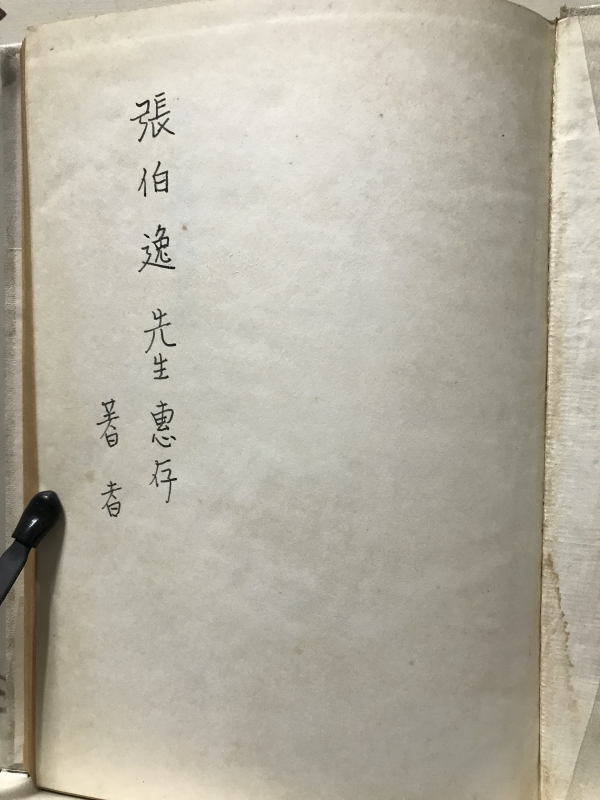 張伯逸先生惠存
著者